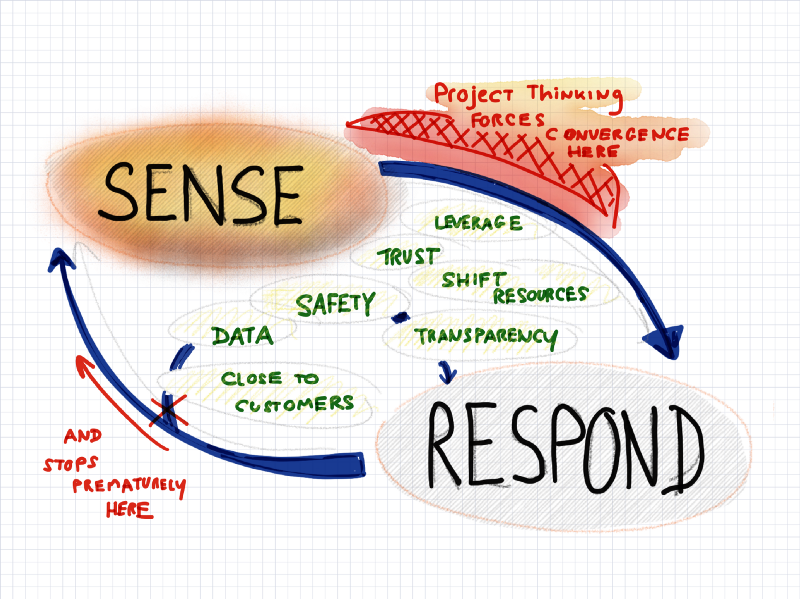 Project Thinking
FORCES
CONVERGENCE
HERE
SENSE
LEVERAGE
TRUST
SHIFT
RESOURCES
SAFETY
DATA
TRANSPARENCY
CLOSE TO
CUSTOMERS
RESPOND
AND
STOPS
PREMATURELY
HERE